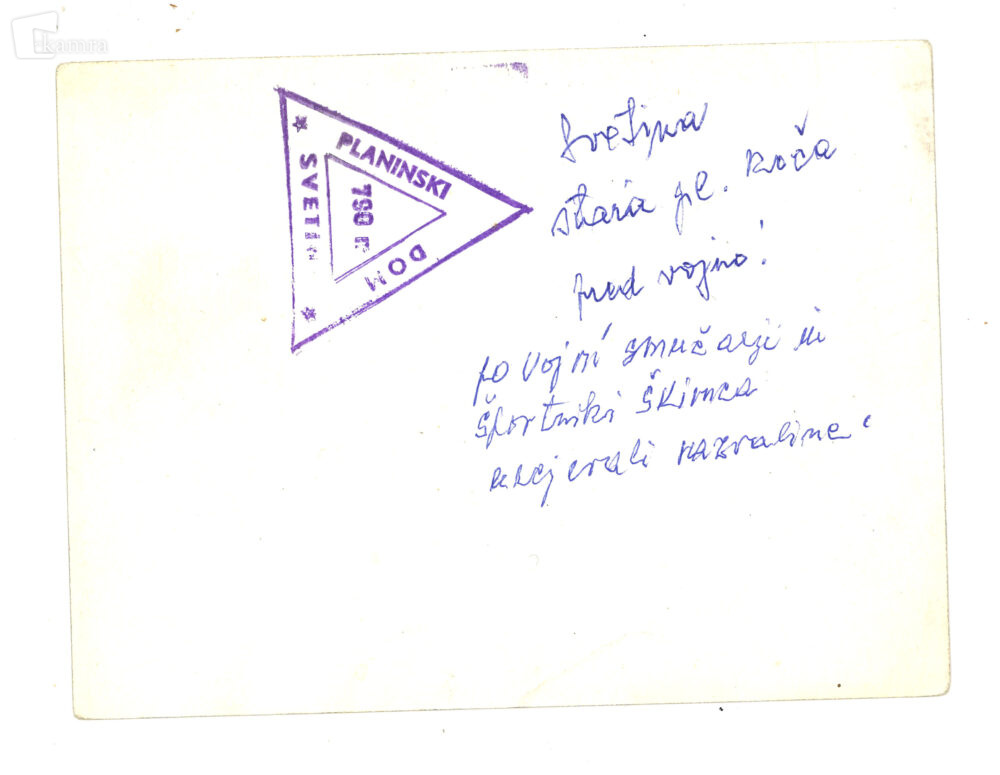 kamra
PLANINSKI
DOM
★ SVETI ★
790
Svetina
stara pl. koča
pred vojno!
po vojni smučarji in
športniki
urejevali razvaline